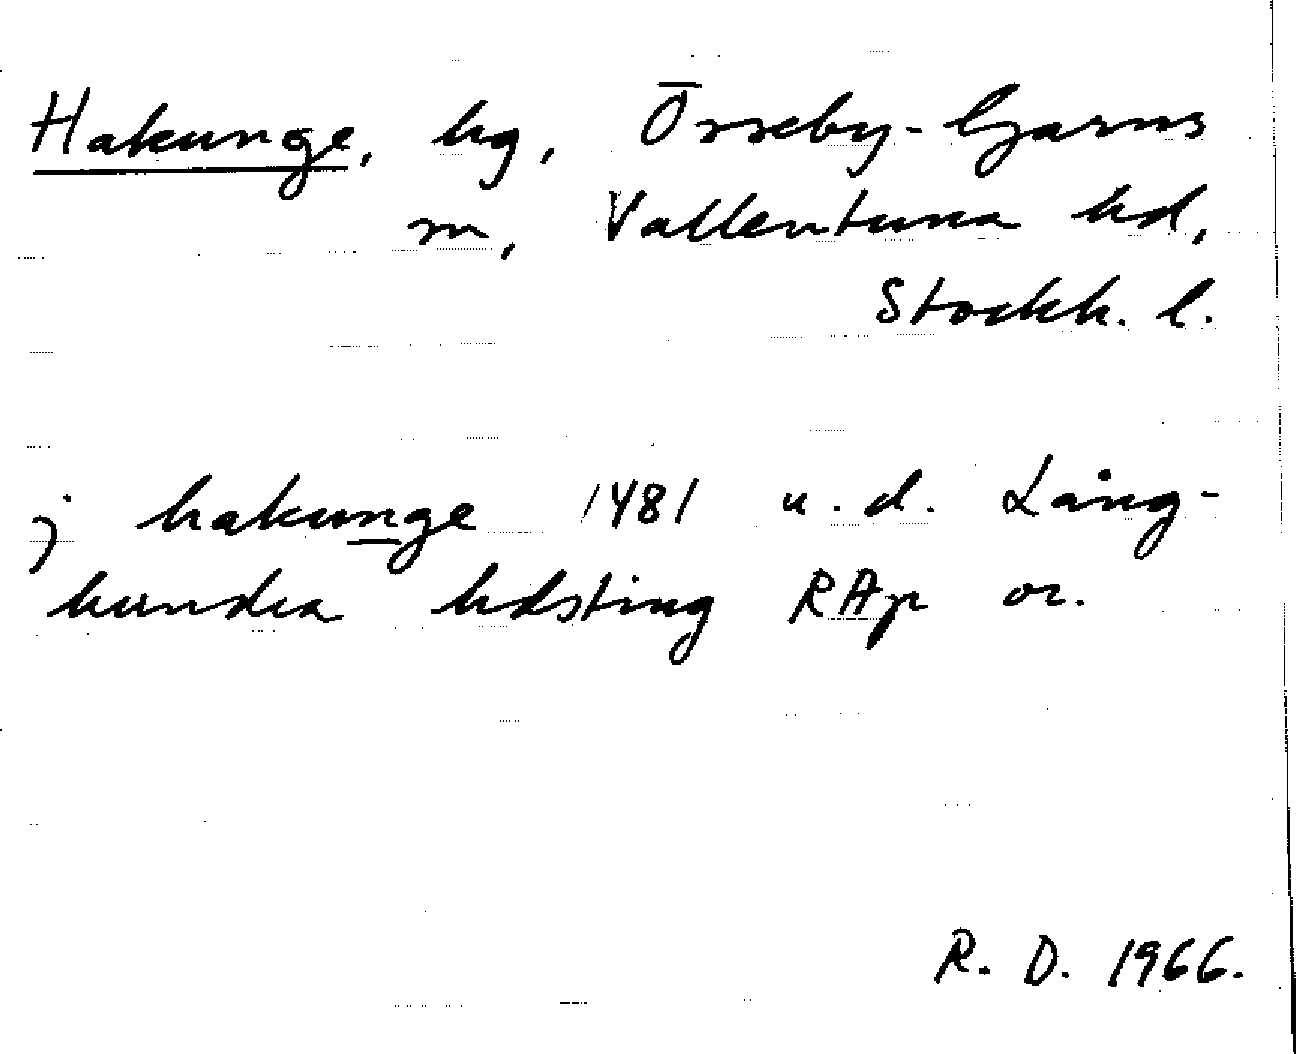 Hakunge, hg, Össeby-Garns
sn, Vallentuna hd,
Stockh. l.
j hakunge 1481 u.d. Lång-
hundra hdsting RAp or.
R. D. 1966.